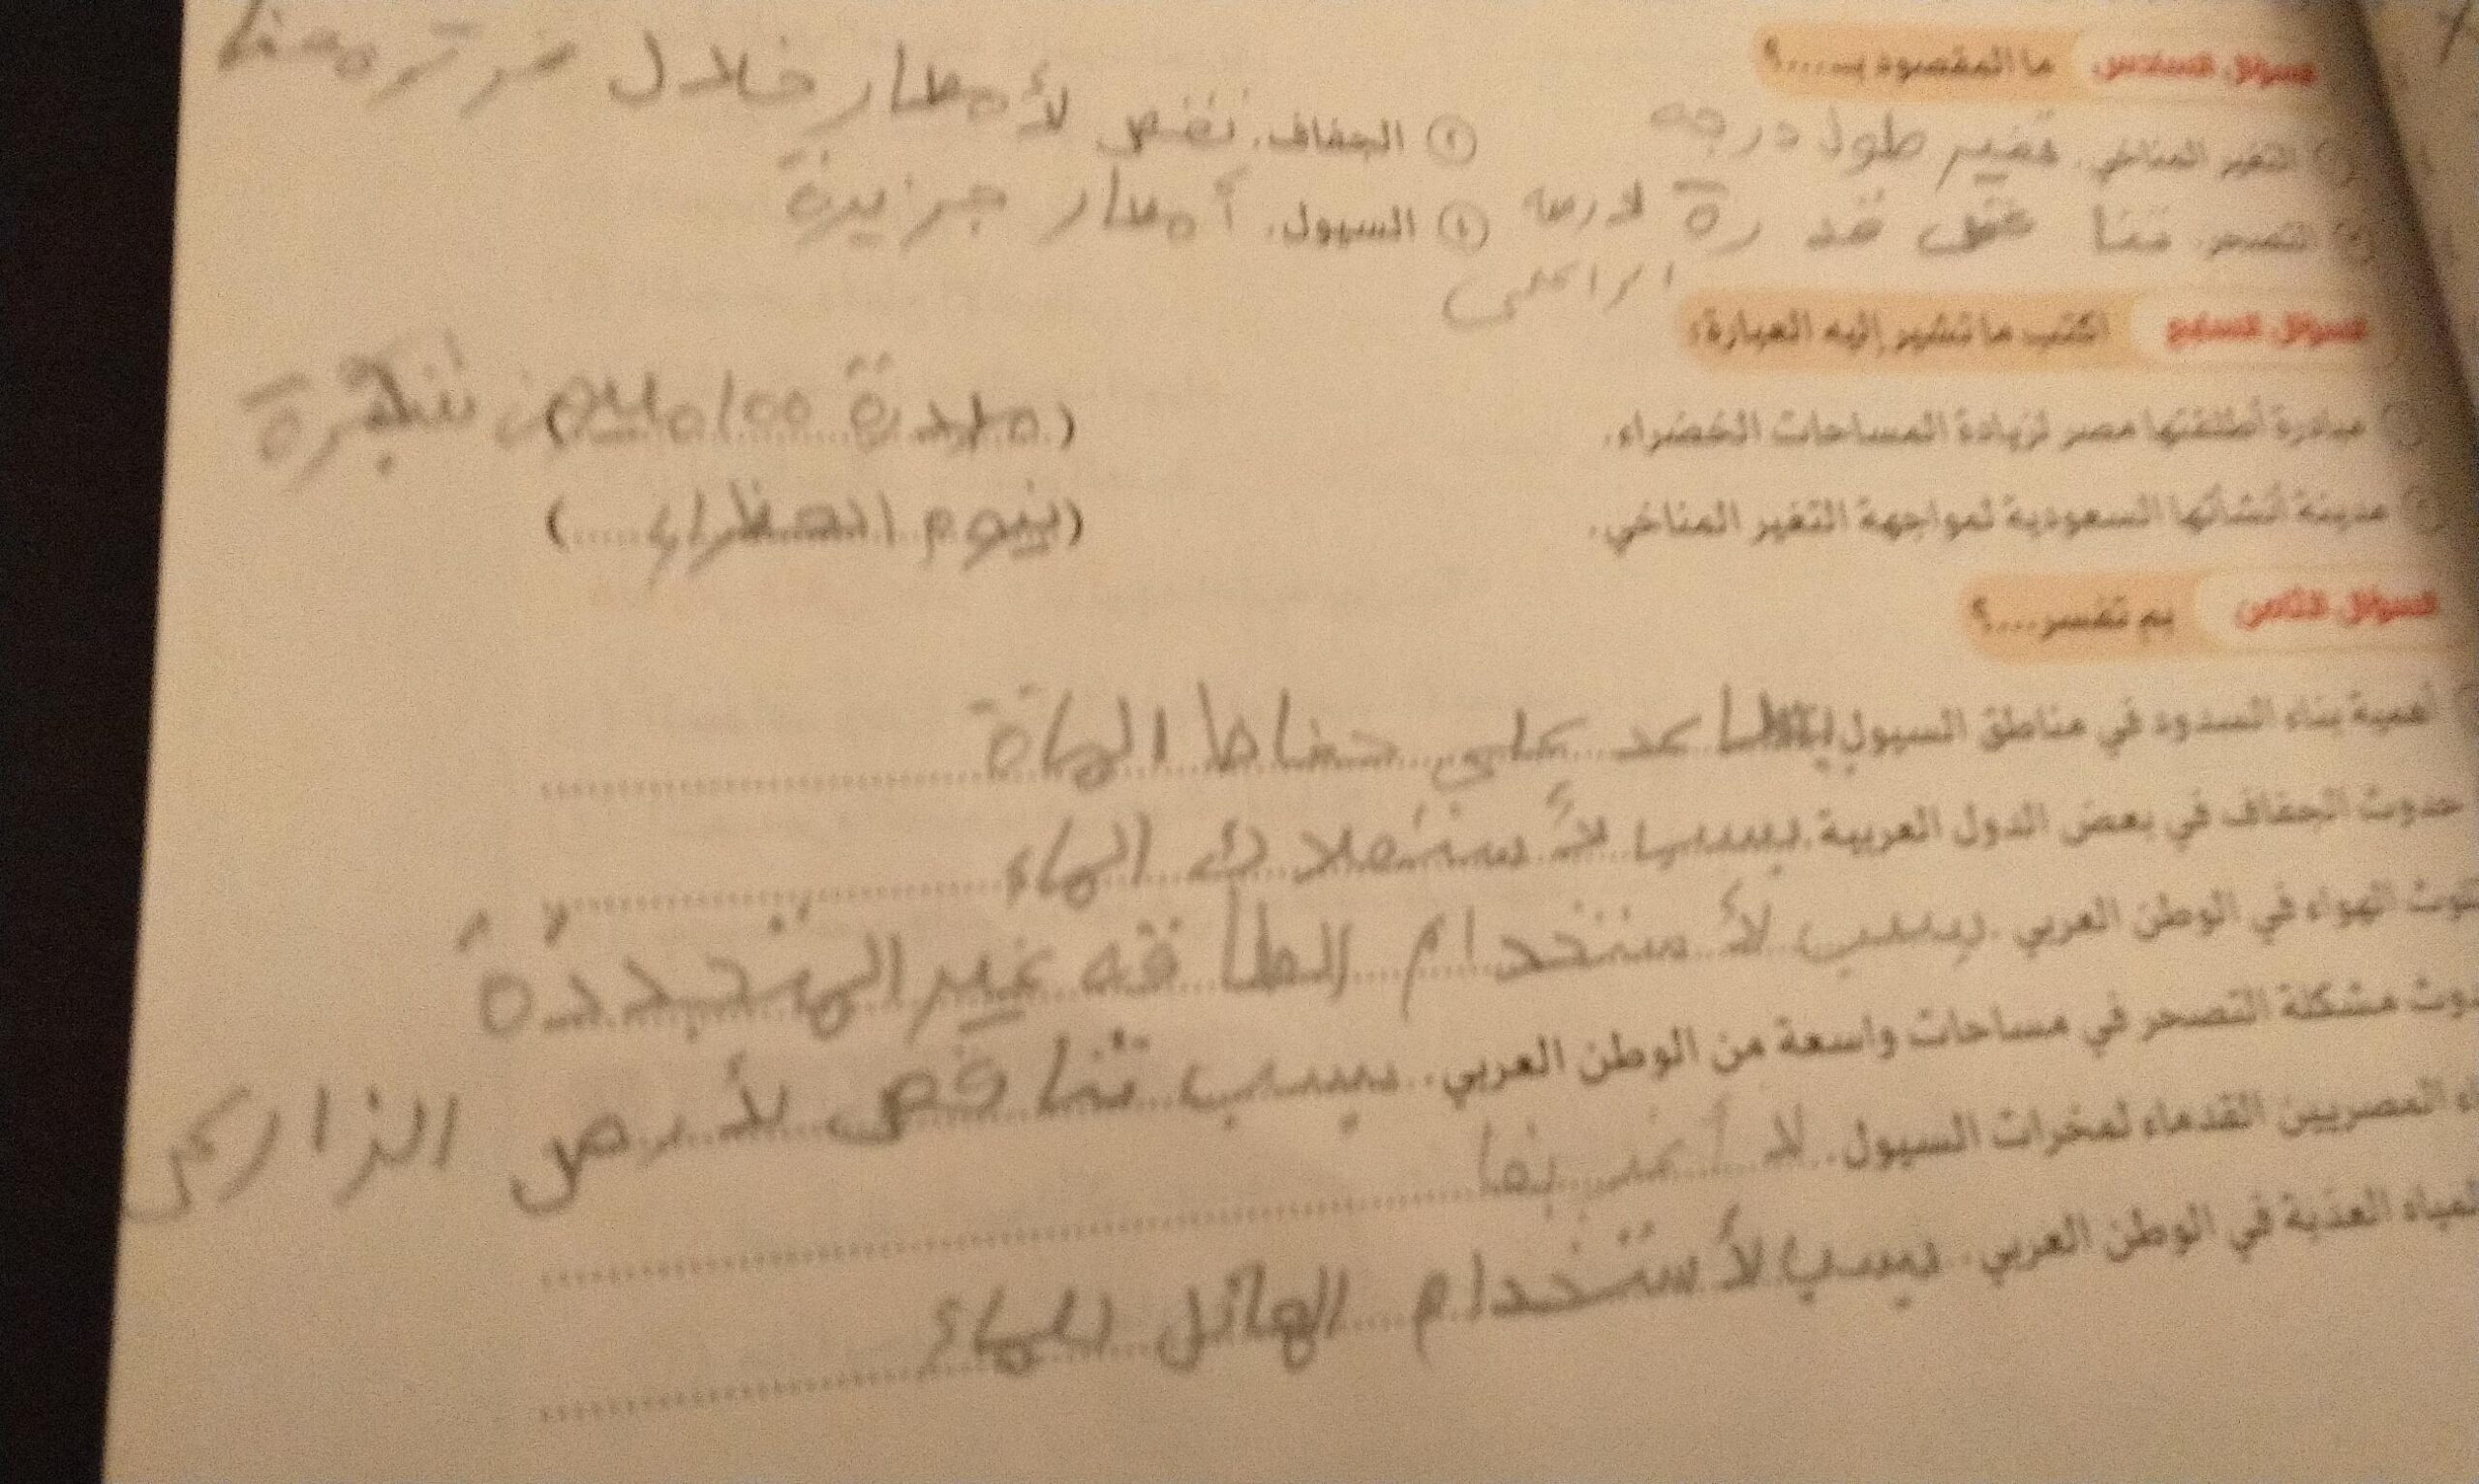 السؤال السادس ما المقصود بـ....؟
التغير المناخي. تغير طول درجه ② الجفاف. نقص لأمطار خلال
التصحر. تنا قدرة ④ السيول. أمطار جزيرة
السؤال السابع اكتب ما تشير إليه العبارة:
مبادرة أطلقتها مصر لزيادة المساحات الخضراء. ( ١٠٠ )
مدينة أنشأتها السعودية لمواجهة التغير المناخي. (نيوم )
السؤال الثامن بم تفسر....؟
أهمية بناء السدود في مناطق السيول عد على حفاظ الماة
حدوث الجفاف في بعض الدول العربية. بسبب لأستهلاك الماء
تلوث الهواء في الوطن العربي. بسبب لأستخدام الطاقه غير المتجددة
مشكلة التصحر في مساحات واسعة من الوطن العربي. بسبب تناقص لأرض الزارعى
المصريين القدماء لمخرات السيول.
المياه العذبة في الوطن العربي. بسبب لأستخدام الهائل للماء